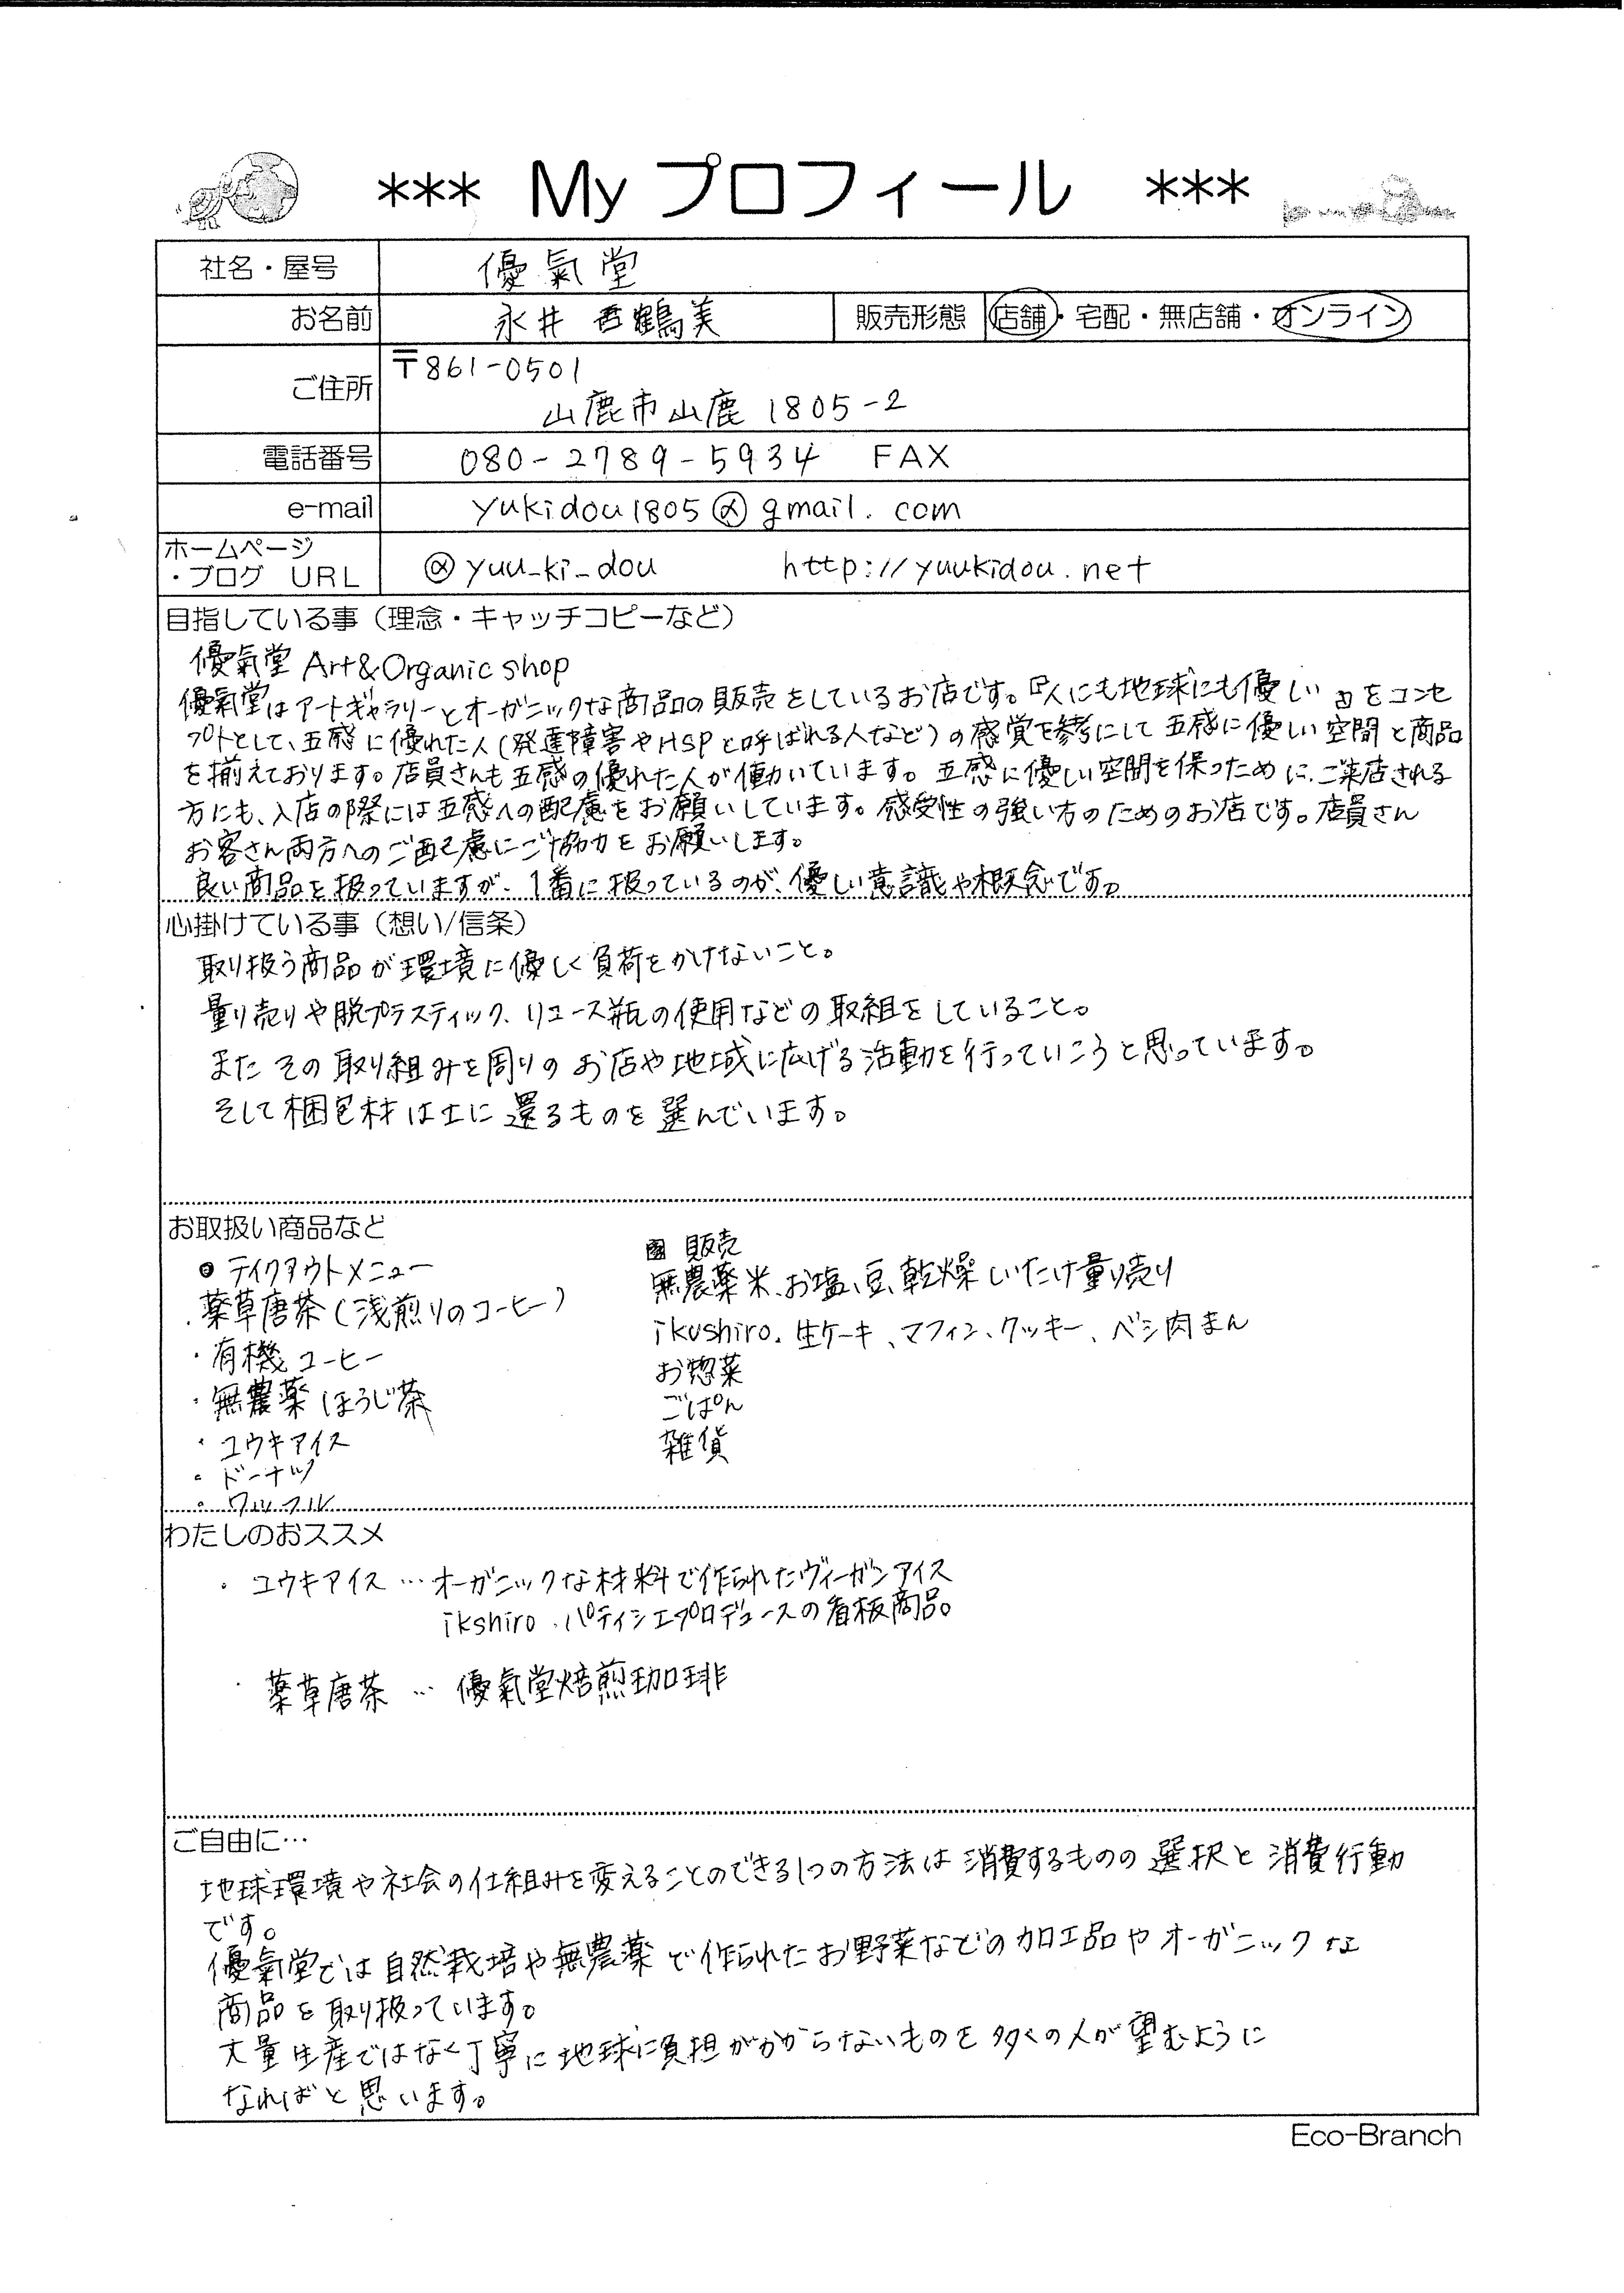 *** My プロフィール ***
社名・屋号 優氣堂
お名前 永井 香鶴美 販売形態 店舗・宅配・無店舗・オンライン
ご住所 〒861-0501
山鹿市山鹿 1805-2
電話番号 080-2789-5934 FAX
e-mail yukidou1805@gmail.com
ホームページ
・ブログ URL @yuu_ki_dou http://yuukidou.net
目指している事（理念・キャッチコピーなど）
優氣堂 Art&Organic shop
優氣堂はアートギャラリーとオーガニックな商品の販売をしているお店です。『人にも地球にも優しい』をコンセ
プトとして、五感に優れた人（発達障害やHSPと呼ばれる人など）の感覚を参考にして五感に優しい空間と商品
を揃えております。店員さんも五感の優れた人が働いています。五感に優しい空間を保つために、ご来店される
方にも、入店の際には五感への配慮をお願いしています。感受性の強い方のためのお店です。店員さん
お客さん両方へのご配慮にご協力をお願いします。
良い商品を扱っていますが、1番に扱っているのが、優しい意識や概念です。
心掛けている事（想い/信条）
取り扱う商品が環境に優しく負荷をかけないこと。
量り売りや脱プラスティック、リユース瓶の使用などの取組をしていること。
またその取り組みを周りのお店や地域に広げる活動を行っていこうと思っています。
そして梱包材は土に還るものを選んでいます。
お取扱い商品など
テイクアウトメニュー
・薬草唐茶（浅煎りのコーヒー）
・有機コーヒー
・無農薬ほうじ茶
・ユウキアイス
・ドーナツ
・ワッフル
販売
無農薬米、お塩、豆、乾燥しいたけ量り売り
ikushiro、生ケーキ、マフィン、クッキー、ベジ肉まん
お惣菜
ごぱん
雑貨
わたしのおススメ
・ユウキアイス…オーガニックな材料で作られたヴィーガンアイス
ikshiro、パティシエプロデュースの看板商品。
・薬草唐茶…優氣堂焙煎珈琲
ご自由に…
地球環境や社会の仕組みを変えることのできる1つの方法は消費するものの選択と消費行動
です。
優氣堂では自然栽培や無農薬で作られたお野菜などの加工品やオーガニックな
商品を取り扱っています。
大量生産ではなく丁寧に地球に負担がかからないものを多くの人が望むように
なればと思います。
Eco-Branch